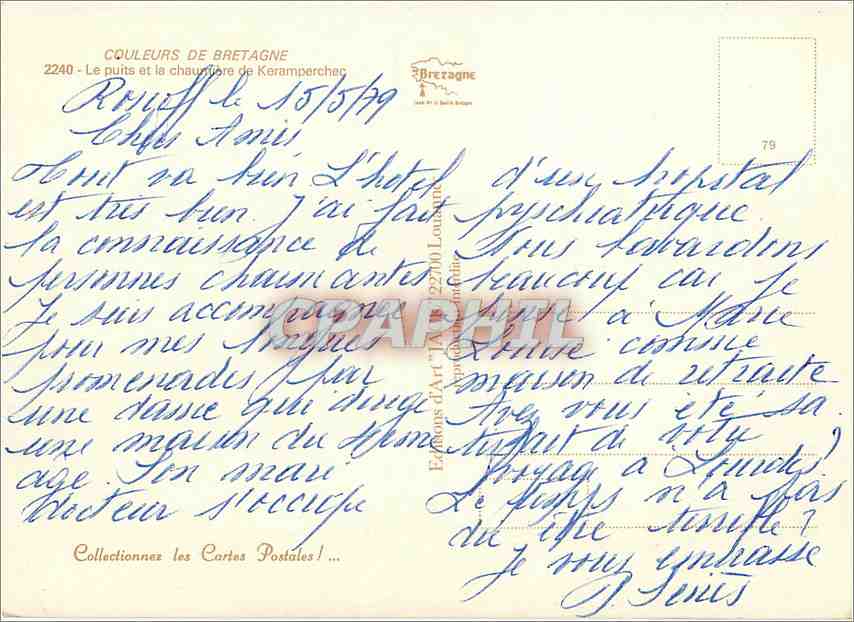 COULEURS DE BRETAGNE
2240 - Le puits et la chaumière de Keramperchec
BRETAGNE
79
Roscoff le 15/5/79
Chers Amis
Tout va bien L'hotel
est très bien. J'ai fait
la connaissance de
personnes charmantes
Je suis accompagnée
pour mes longues
promenades par
une dame qui dirige
une maison du 3eme
age. Son mari
docteur s'occupe
d'un hopital
psychiatrique.
Nous bavardons
beaucoup car je
à Marie
Louise comme
maison de retraite
Avez vous été sa
tisfait de votre
voyage à Lourdes?
Le temps n'a pas
du être terrible?
Je vous embrasse
Collectionnez les Cartes Postales ! ...
Editions d'Art "JACK" 22700 Louannec
reproduction interdite
CPAPHIL